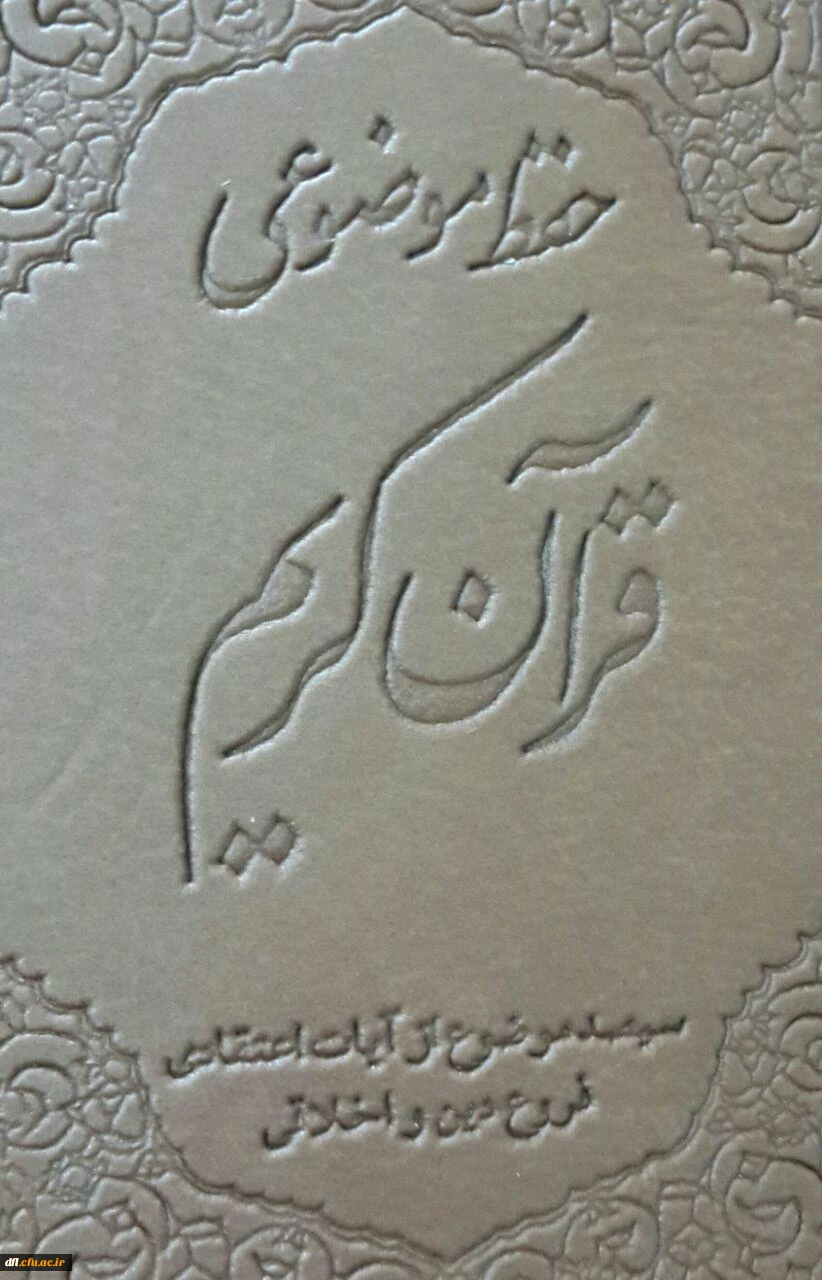 حفظ موضوعی
قرآن کریم
سیصد موضوع از آیات اعتقادی
فروع دین و اخلاقی
dfl.cfu.ac.ir